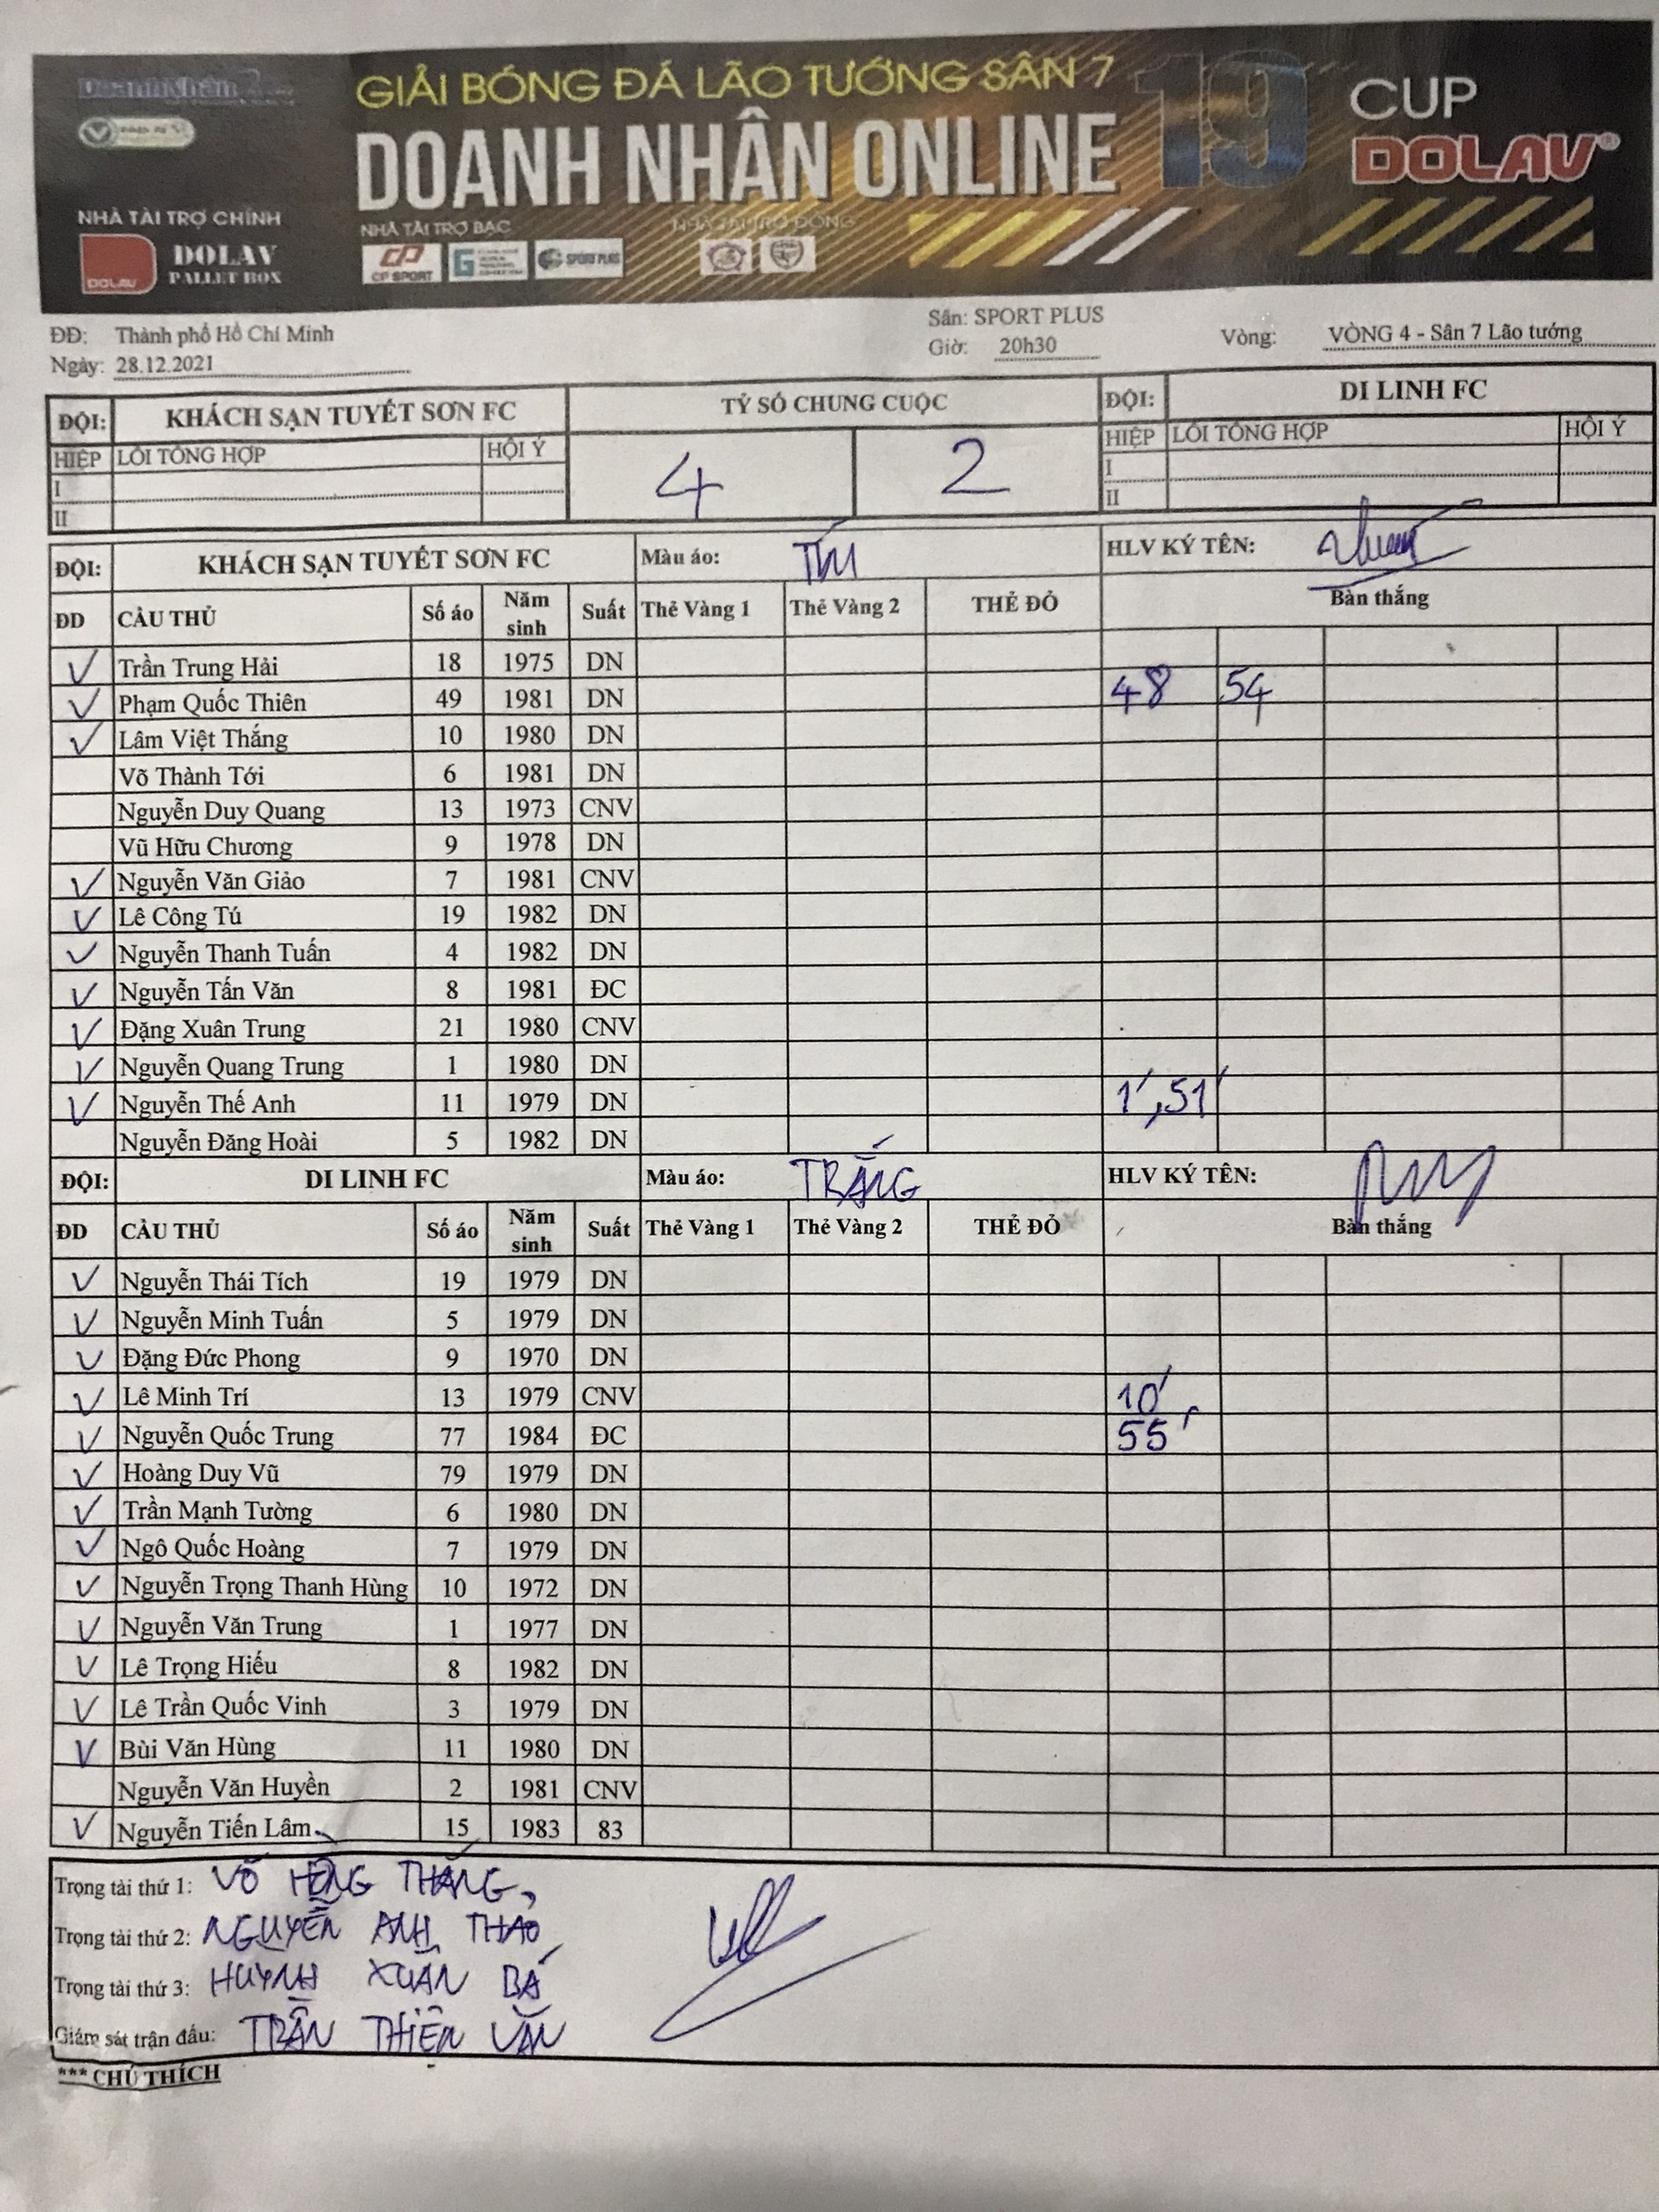 DoanhNhân
GIẢI BÓNG ĐÁ LÃO TƯỚNG SÂN 7
DOANH NHÂN ONLINE 19
CUP
DOLAV®
NHÀ TÀI TRỢ CHÍNH
DOLAV
DOLAV
PALLET BOX
NHÀ TÀI TRỢ BẠC
CP SPORT
SPORT PLUS
NHÀ TÀI TRỢ ĐỒNG
ĐĐ: Thành phố Hồ Chí Minh
Ngày: 28.12.2021
Sân: SPORT PLUS
Giờ: 20h30
Vòng: VÒNG 4 - Sân 7 Lão tướng
ĐỘI: KHÁCH SẠN TUYẾT SƠN FC TỶ SỐ CHUNG CUỘC ĐỘI: DI LINH FC
HIỆP LỖI TỔNG HỢP HỘI Ý 4 2 HIỆP LỖI TỔNG HỢP HỘI Ý
I I
II II
ĐỘI: KHÁCH SẠN TUYẾT SƠN FC Màu áo: HLV KÝ TÊN:
ĐD CẦU THỦ Số áo Năm sinh Suất Thẻ Vàng 1 Thẻ Vàng 2 THẺ ĐỎ Bàn thắng
V Trần Trung Hải 18 1975 DN
V Phạm Quốc Thiên 49 1981 DN 48 54
V Lâm Việt Thắng 10 1980 DN
Võ Thành Tới 6 1981 DN
Nguyễn Duy Quang 13 1973 CNV
Vũ Hữu Chương 9 1978 DN
V Nguyễn Văn Giảo 7 1981 CNV
V Lê Công Tú 19 1982 DN
V Nguyễn Thanh Tuấn 4 1982 DN
V Nguyễn Tấn Văn 8 1981 ĐC
V Đặng Xuân Trung 21 1980 CNV
V Nguyễn Quang Trung 1 1980 DN
V Nguyễn Thế Anh 11 1979 DN 1', 51'
Nguyễn Đăng Hoài 5 1982 DN
ĐỘI: DI LINH FC Màu áo: TRẮNG HLV KÝ TÊN:
ĐD CẦU THỦ Số áo Năm sinh Suất Thẻ Vàng 1 Thẻ Vàng 2 THẺ ĐỎ Bàn thắng
V Nguyễn Thái Tích 19 1979 DN
V Nguyễn Minh Tuấn 5 1979 DN
V Đặng Đức Phong 9 1970 DN
V Lê Minh Trí 13 1979 CNV 10'
V Nguyễn Quốc Trung 77 1984 ĐC 55'
V Hoàng Duy Vũ 79 1979 DN
V Trần Mạnh Tường 6 1980 DN
V Ngô Quốc Hoàng 7 1979 DN
V Nguyễn Trọng Thanh Hùng 10 1972 DN
V Nguyễn Văn Trung 1 1977 DN
V Lê Trọng Hiếu 8 1982 DN
V Lê Trần Quốc Vinh 3 1979 DN
V Bùi Văn Hùng 11 1980 DN
Nguyễn Văn Huyền 2 1981 CNV
V Nguyễn Tiến Lâm 15 1983 83
Trọng tài thứ 1: VÕ HỒNG THẮNG
Trọng tài thứ 2: NGUYỄN ANH THẢO
Trọng tài thứ 3: HUỲNH XUÂN BÁ
Giám sát trận đấu: TRẦN THIỆN VĂN
*** CHÚ THÍCH